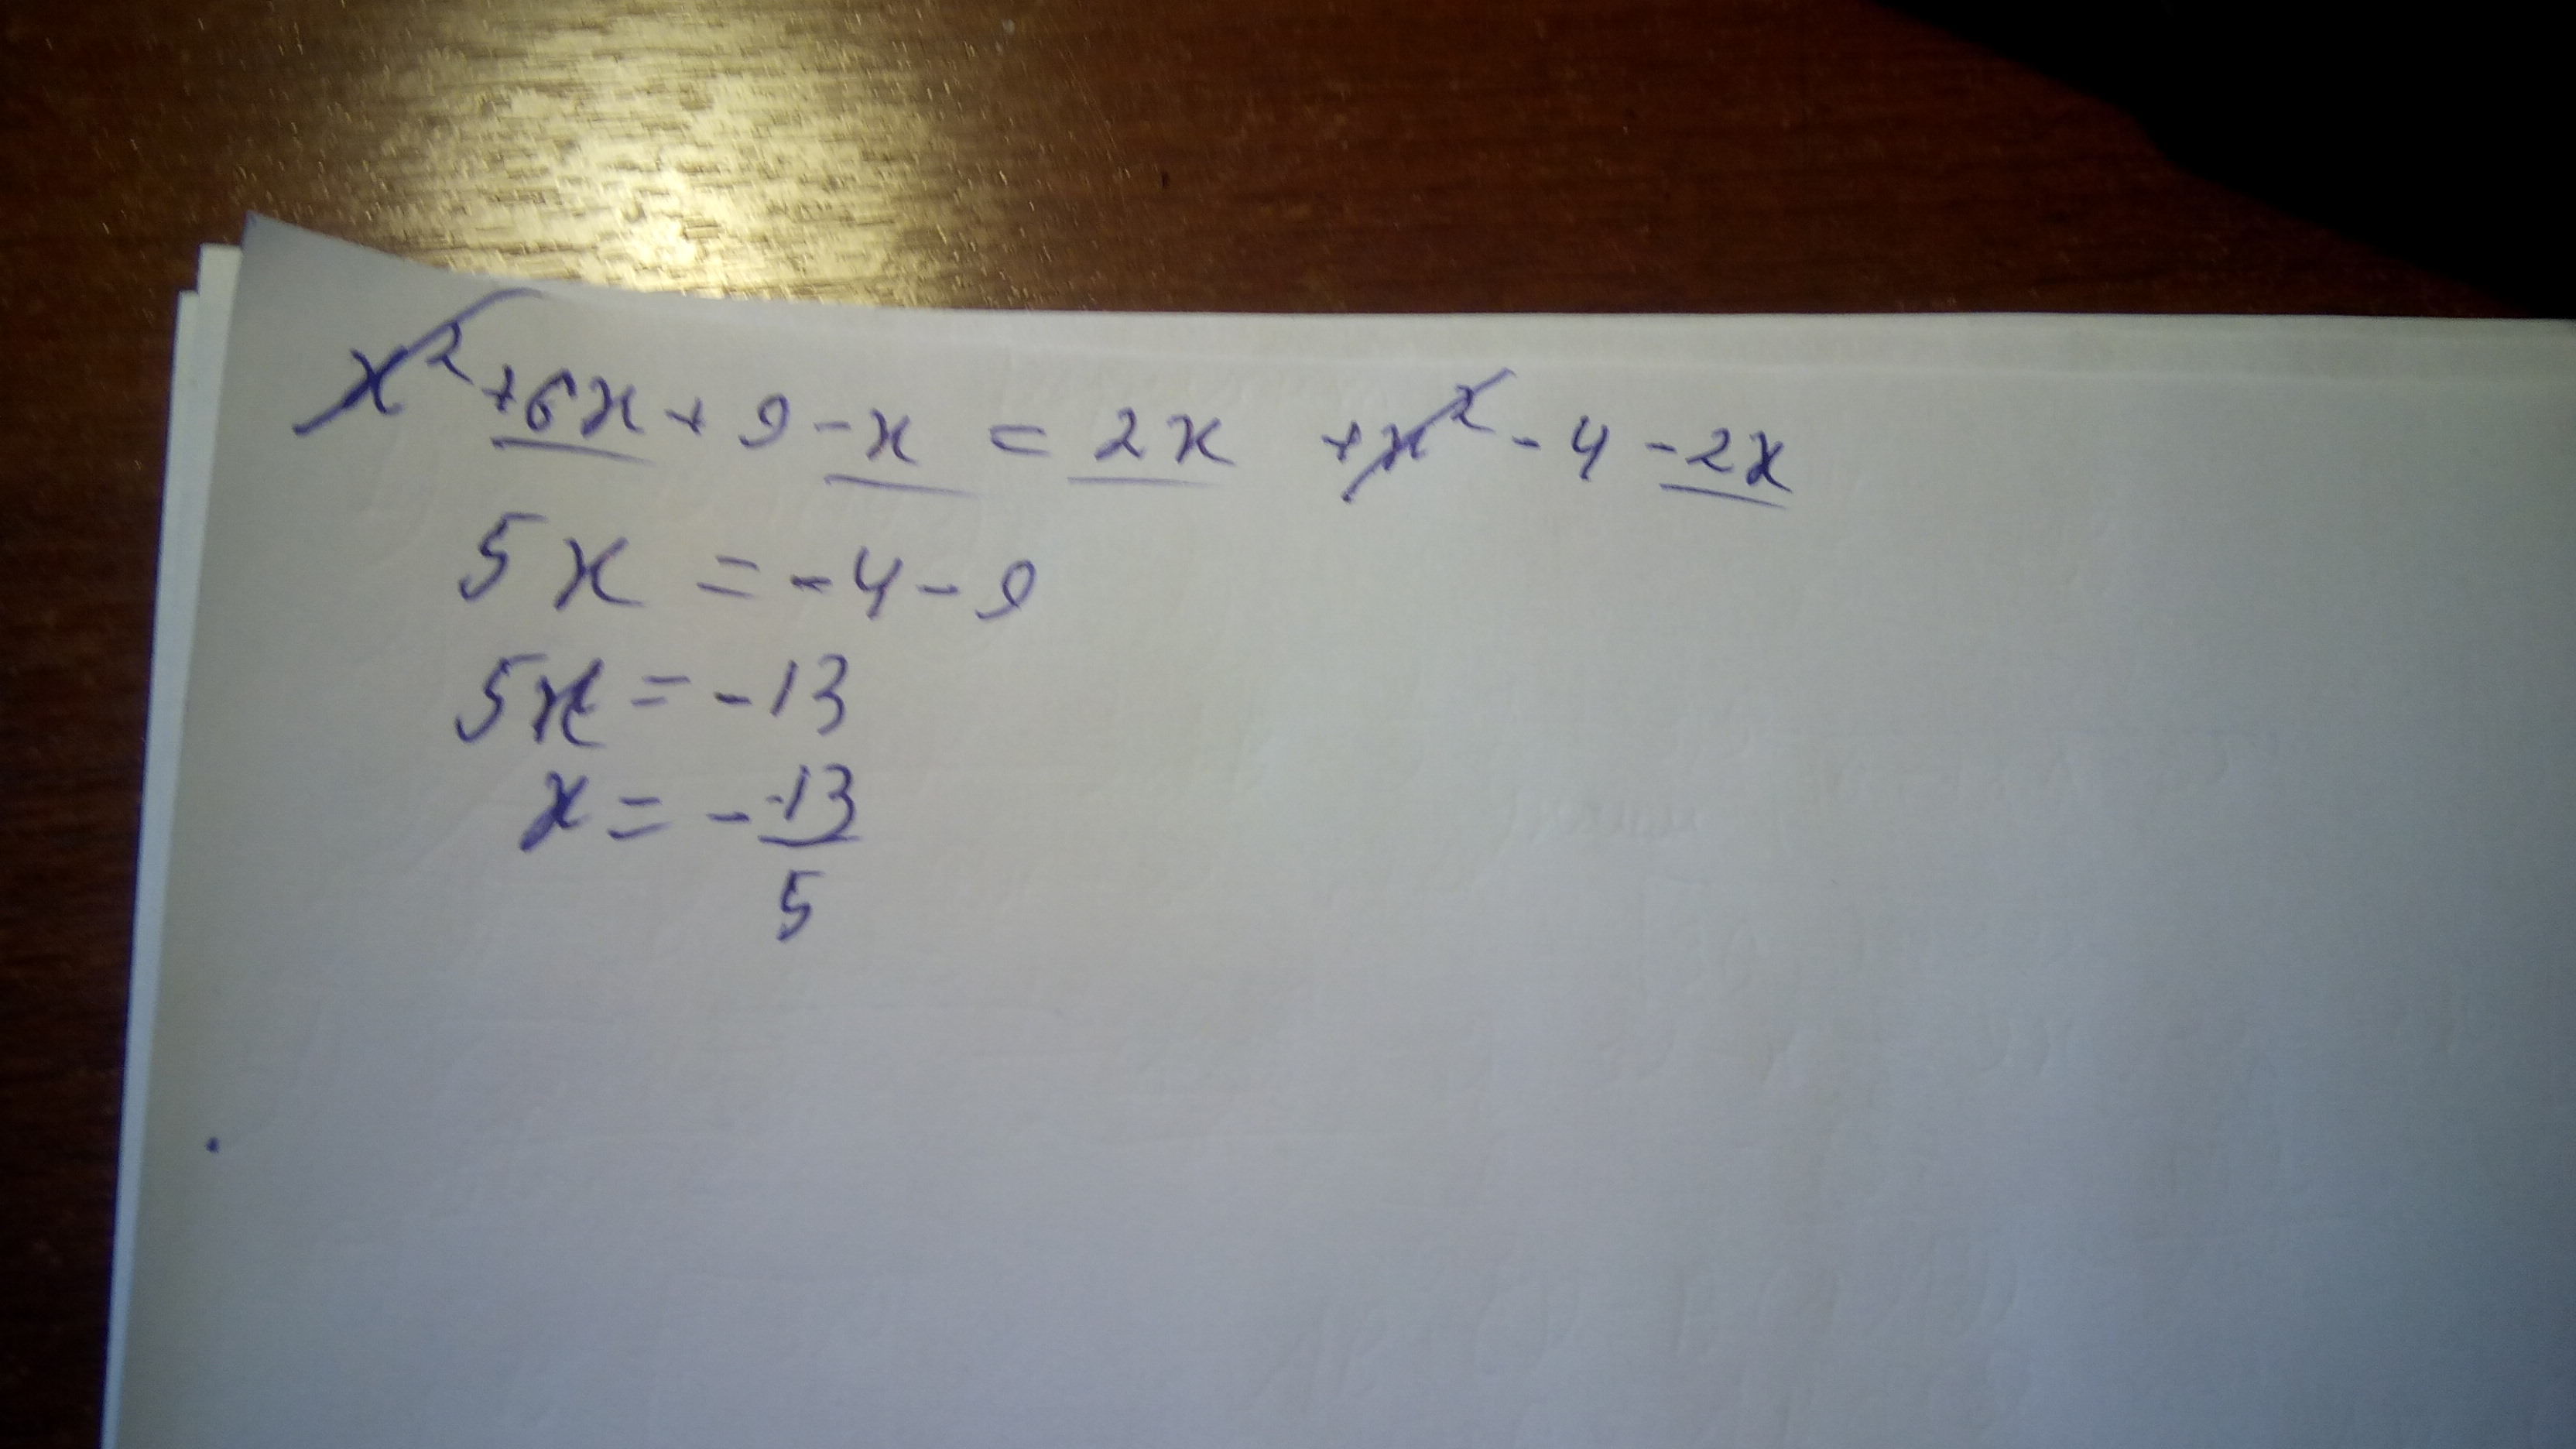 x² + 6x + 9 - x = 2x + x² - 4 - 2x
5x = -4 - 9
5x = -13
x = - -13/5